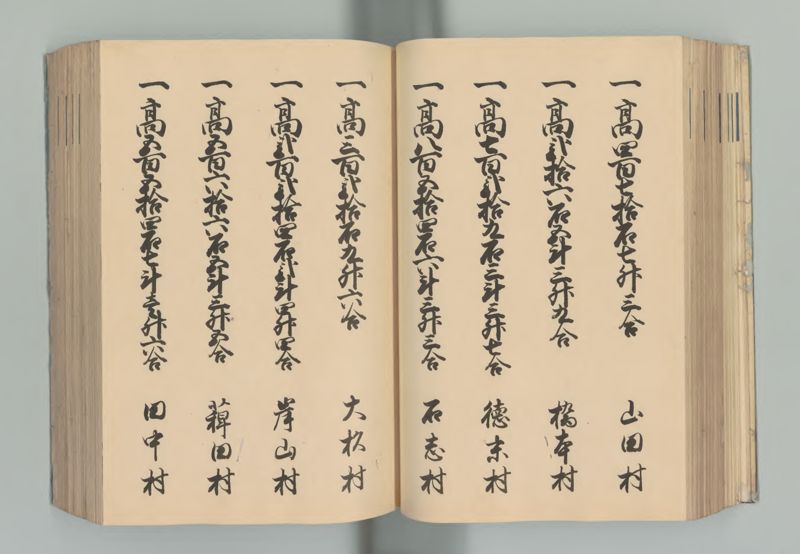 一高四百七拾石七升三合　山田村
一高弐拾六石五斗三升九合　橋本村
一高七百弐拾九石三斗三升七合　徳末村
一高八百五拾四石六斗三升三合　石志村
一高三百弐拾石九升六合　大杉村
一高弐百弐拾四石弐斗四升四合　岸山村
一高五百六拾六石五斗三升五合　稗田村
一高五百五拾四石七斗壱升六合　田中村